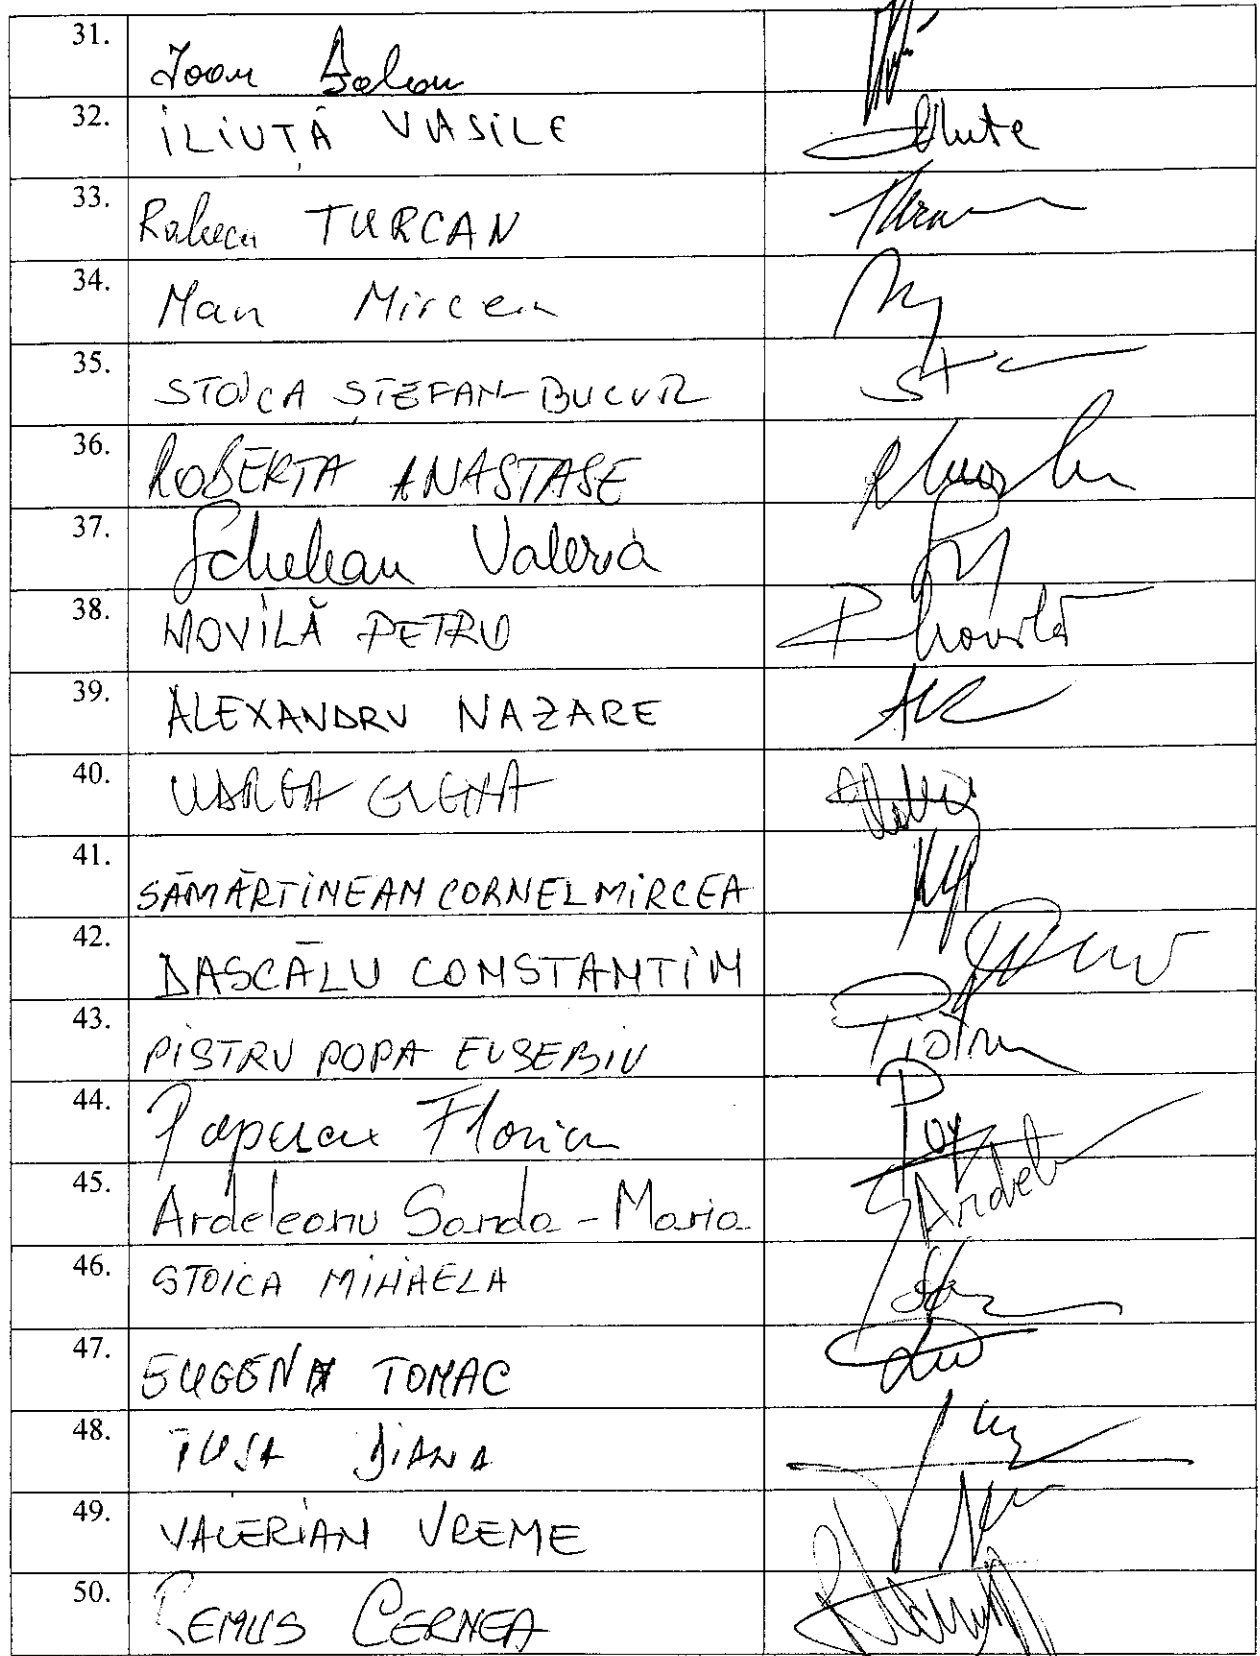 31. Ioan Balan
32. ILIUȚĂ VASILE Iliuta
33. Raluca TURCAN
34. Man Mircea
35. STOICA ȘTEFAN-BUCUR St
36. ROBERTA ANASTASE
37. Schelean Valeria
38. MOVILĂ PETRU PMovilă
39. ALEXANDRU NAZARE
40. UDREA ELENA
41. SĂMĂRTINEAN CORNEL MIRCEA
42. DASCĂLU CONSTANTIN
43. PISTRU POPA EUSEBIU Pistru
44. Papucu Florin Pop
45. Ardeleanu Sanda-Maria SArdel
46. STOICA MIHAELA
47. EUGEN TOMAC
48. TUȘA DIANA
49. VALERIAN VREME
50. REMUS CERNEA